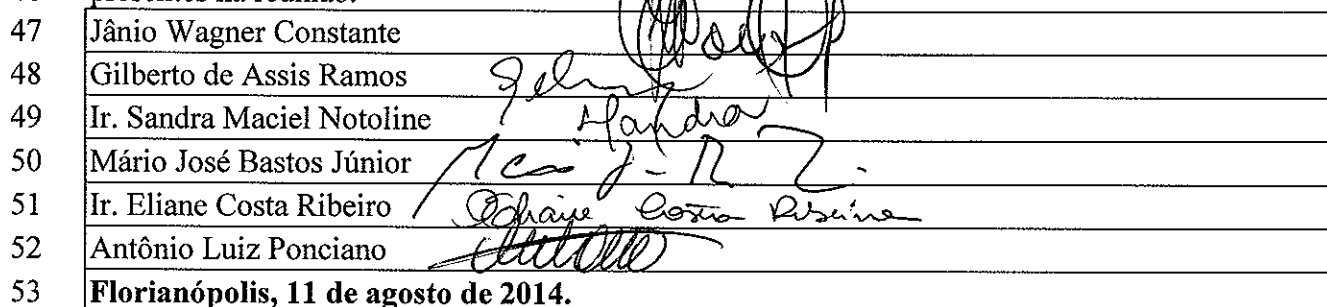 presentes na reunião.
47 Jânio Wagner Constante
48 Gilberto de Assis Ramos
49 Ir. Sandra Maciel Notoline Sandra
50 Mário José Bastos Júnior
51 Ir. Eliane Costa Ribeiro Eliane Costa Ribeiro
52 Antônio Luiz Ponciano
53 Florianópolis, 11 de agosto de 2014.